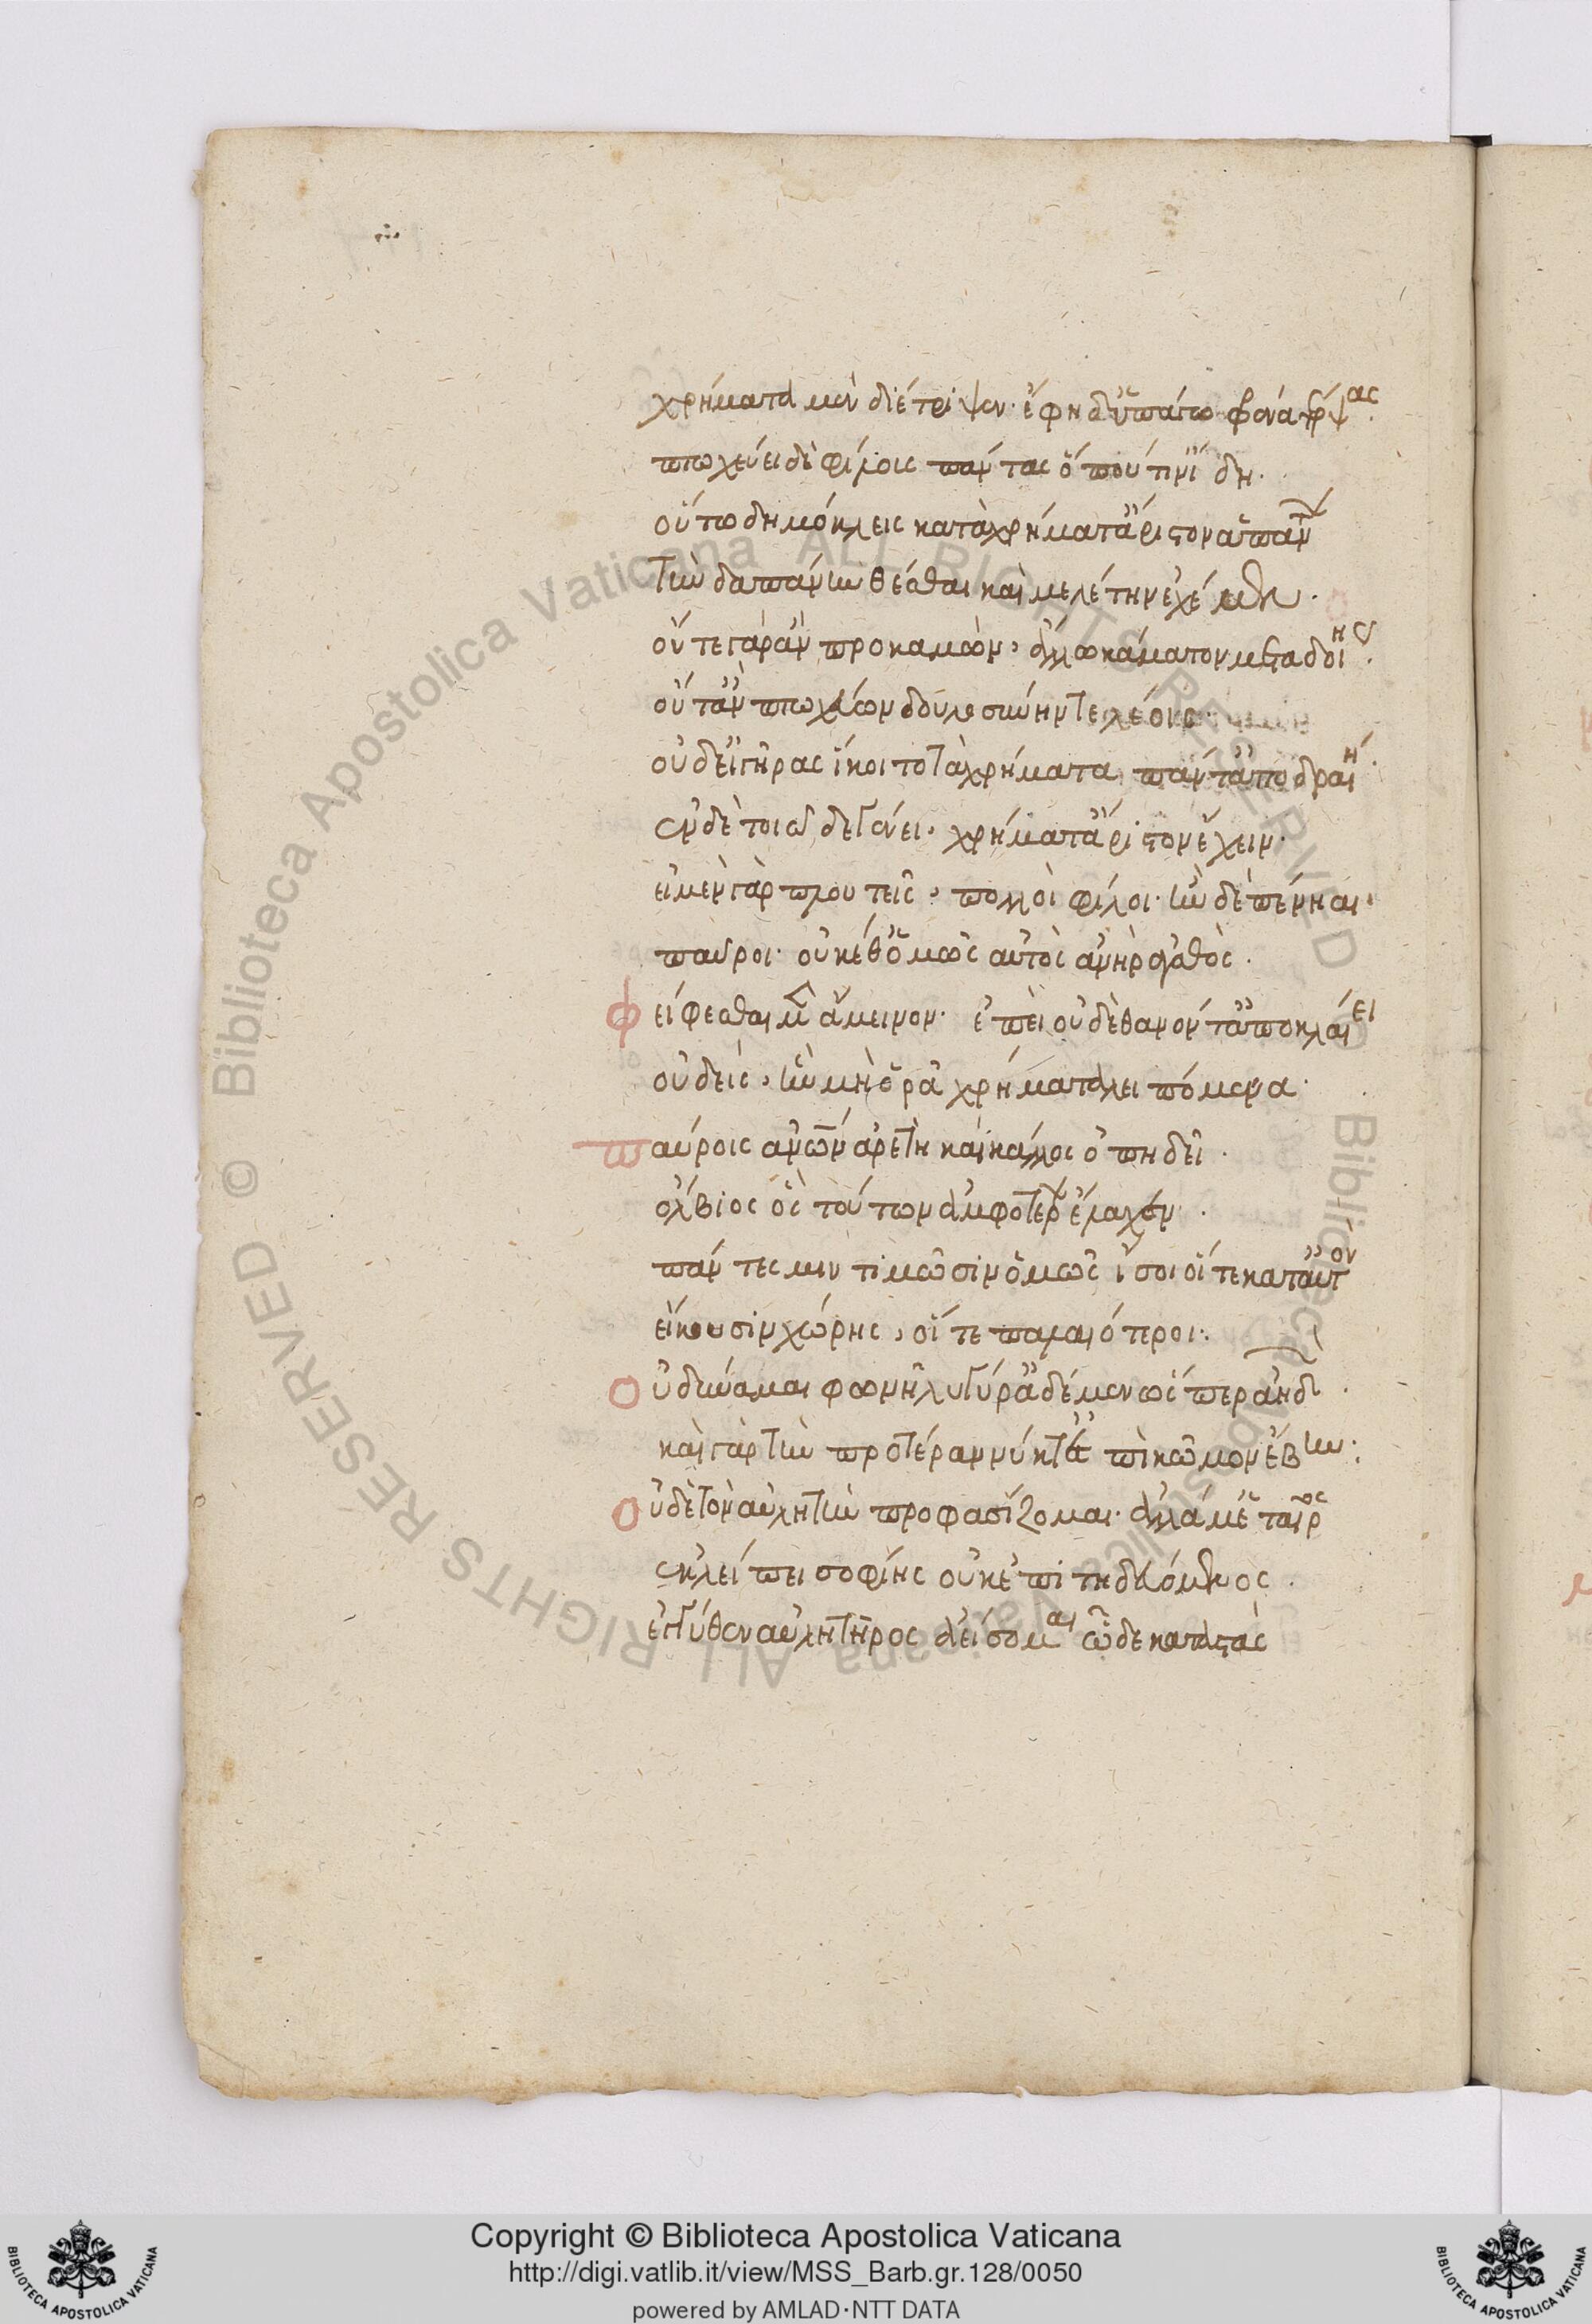 χρήματα μὲν διέτριψεν· ἔφη δ' ὑπάγω φρένα τέρψας·
πτωχεύει δὲ φίλοις πάντας ὅπού τιν' ἴδη·
οὕτω δημόκλεις κατὰ χρήματ' ἄριστον ἁπάντων
τὴν δαπάνην θέσθαι καὶ μελέτην ἐχέμεν·
οὔτε γὰρ ἂν προκαμὼν, ἄλλω κάματον μεταδοίης·
οὔτ' ἂν πτωχεύων δουλοσύνην τελέοις·
οὐδ' εἰ γῆρας ἵκοι το τὰ χρήματα πάντ' ἀποδραίη·
ἐν δὲ τοιῶδε γένει, χρήματ' ἄριστον ἔχειν·
εἰ μὲν γὰρ πλουτεῖς, πολλοὶ φίλοι· ἢν δὲ πένηαι,
παῦροι· οὐκέθ' ὁμῶς αὐτὸς ἀνὴρ ἀγαθὸς·
φείδεσθαι μὲν ἄμεινον· ἐπεὶ οὐδὲ θανόντ' ἀποκλαίει
οὐδεὶς, ἢν μὴ ὁρᾶ χρήματα λειπόμενα·
παύροις ἀνθρώπων ἀρετὴ καὶ κάλλος ὀπηδεῖ·
ὄλβιος ὃς τούτων ἀμφοτέρων ἔλαχεν·
πάντες μιν τιμῶσιν ὁμῶς ἴσοι οἵ τε κατ' αὐτὸν
εἴκουσιν χώρης, οἵ τε παλαιότεροι·
οὐ δύναμαι φωνῆ λιγύρ' ἀδέμεν ὥσπερ ἀηδών·
καὶ γὰρ τὴν προτέραν νύκτ' ἐπὶ κῶμον ἔβην·
οὐδὲ τὸν αὐλητὴν προφασίζομαι· ἀλλά μ' ἑταῖρος
ἐκλείπει σοφίης οὐκ ἐπιδευόμενος·
ἐγγύθεν αὐλητῆρος ἀείσομαι ὧδε καταστὰς
Copyright © Biblioteca Apostolica Vaticana
http://digi.vatlib.it/view/MSS_Barb.gr.128/0050
powered by AMLAD·NTT DATA